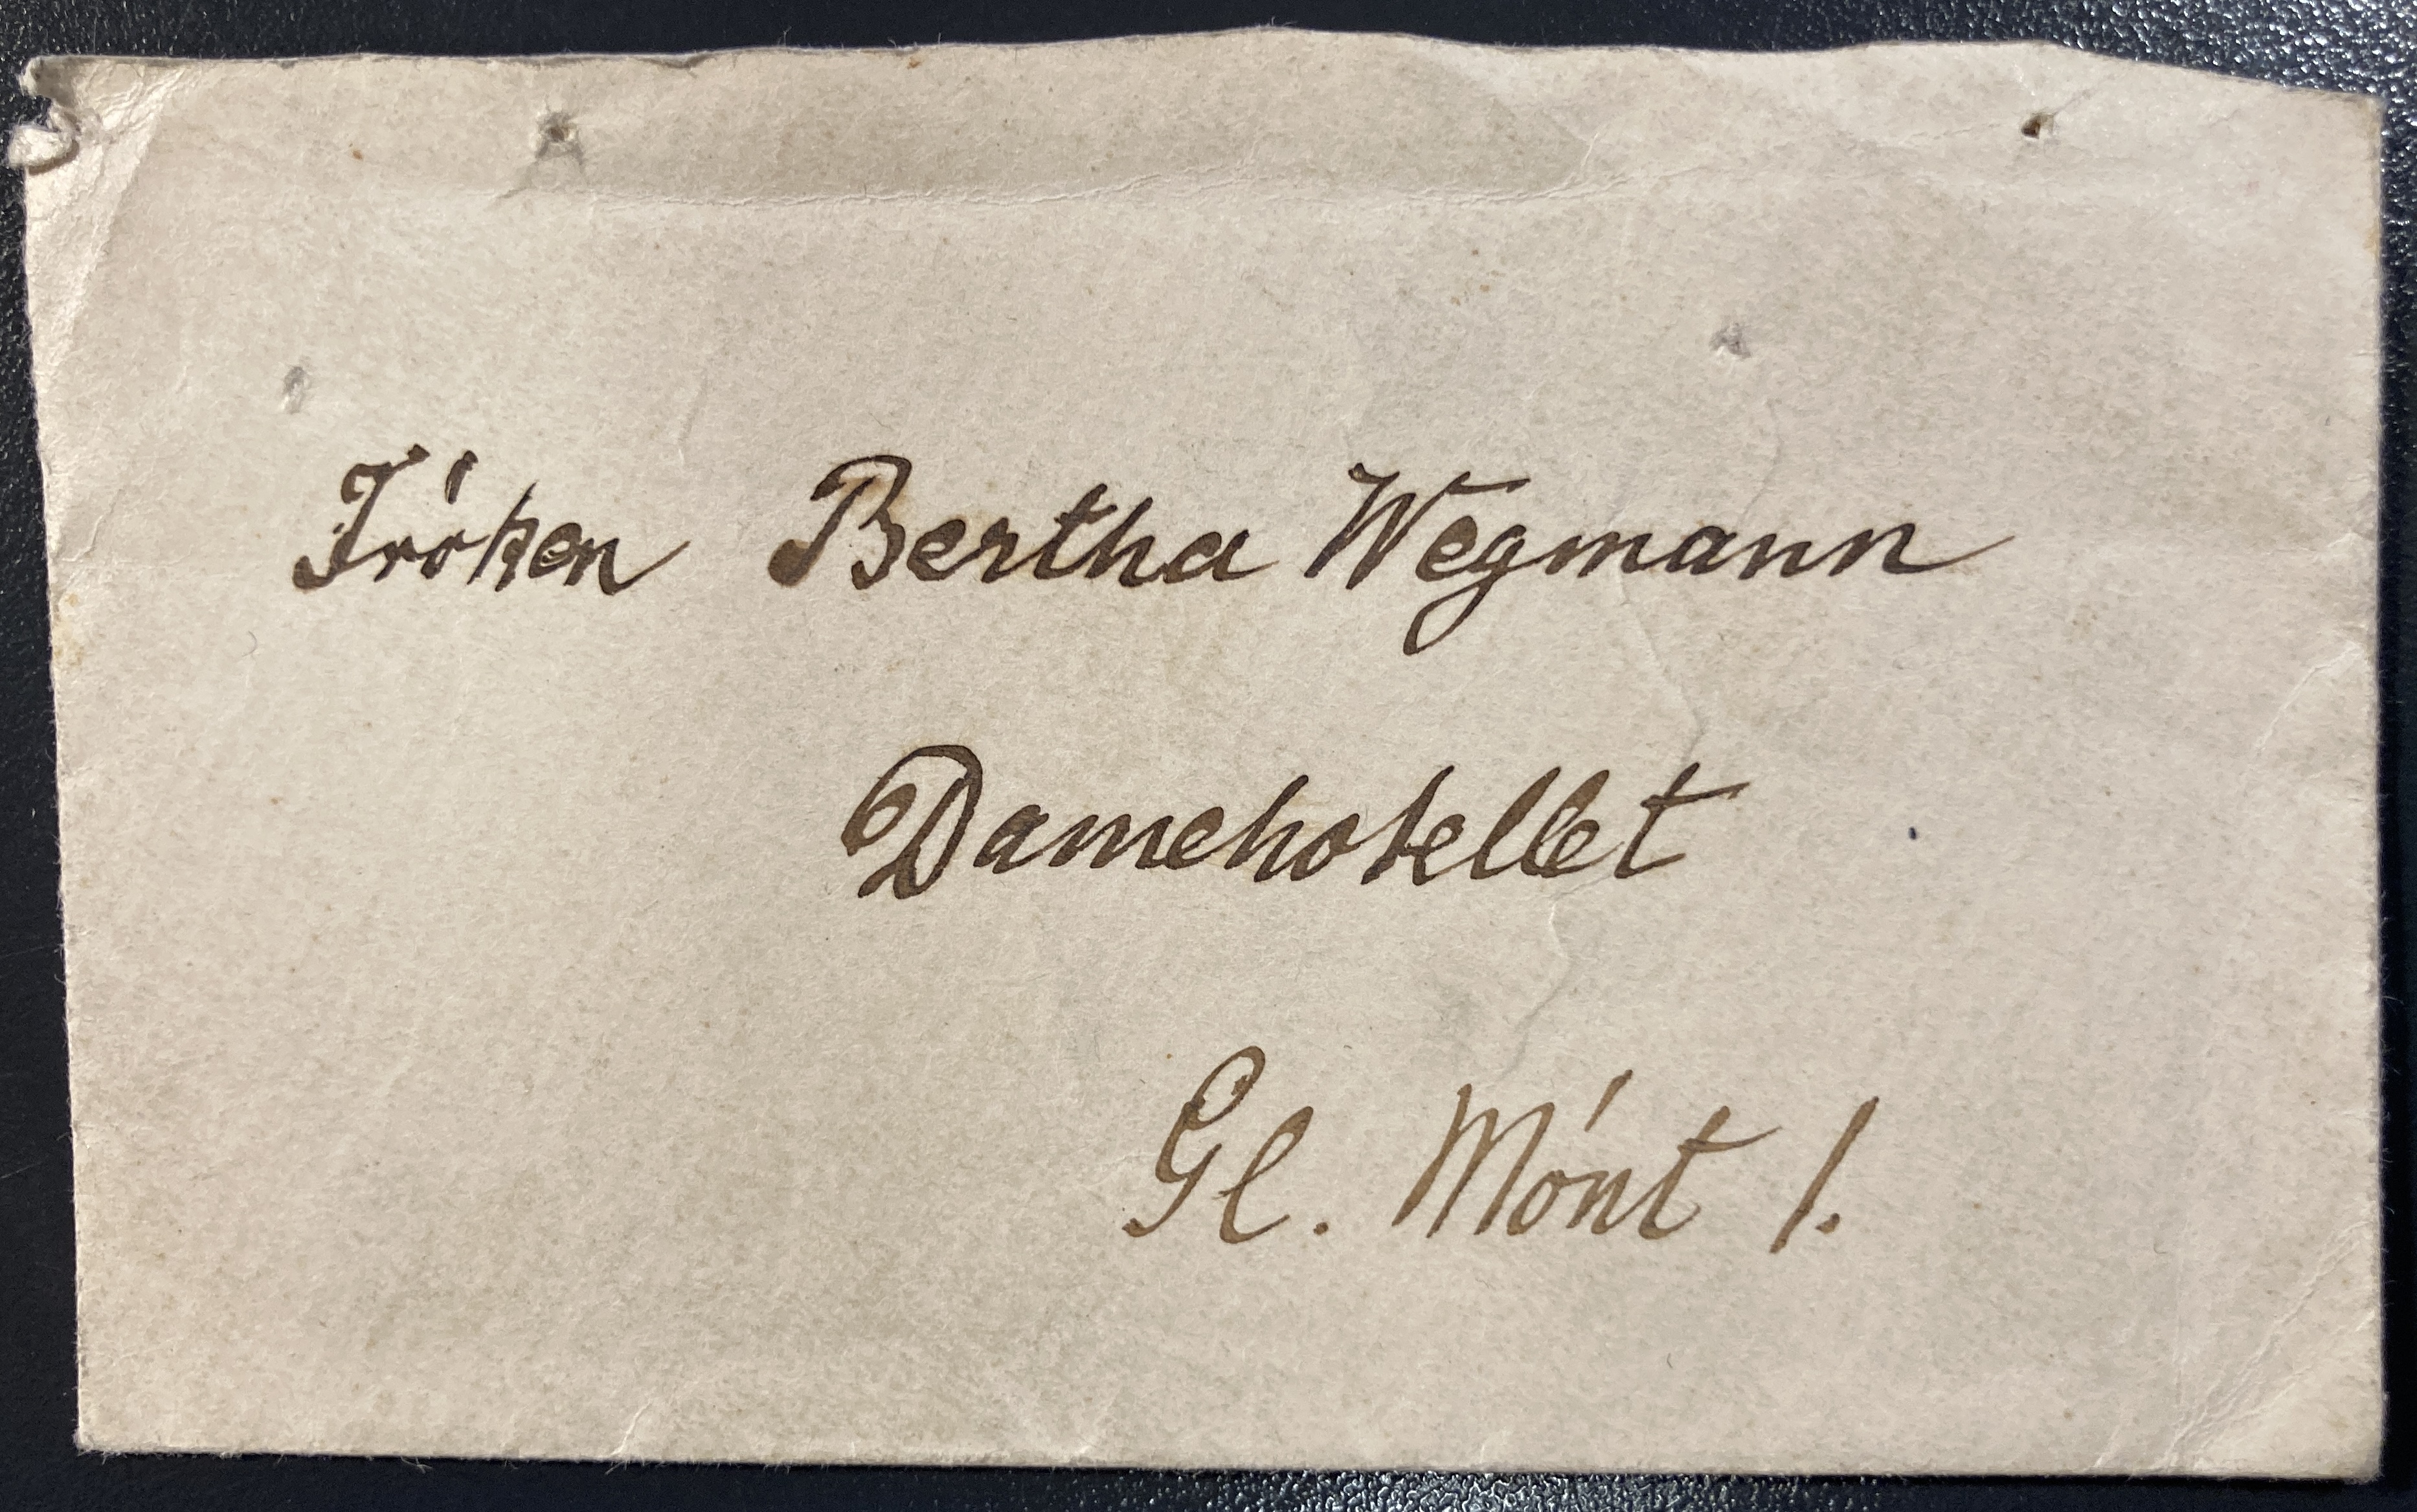 Frøken Bertha Wegmann
Damehotellet
Gl. Mønt 1.